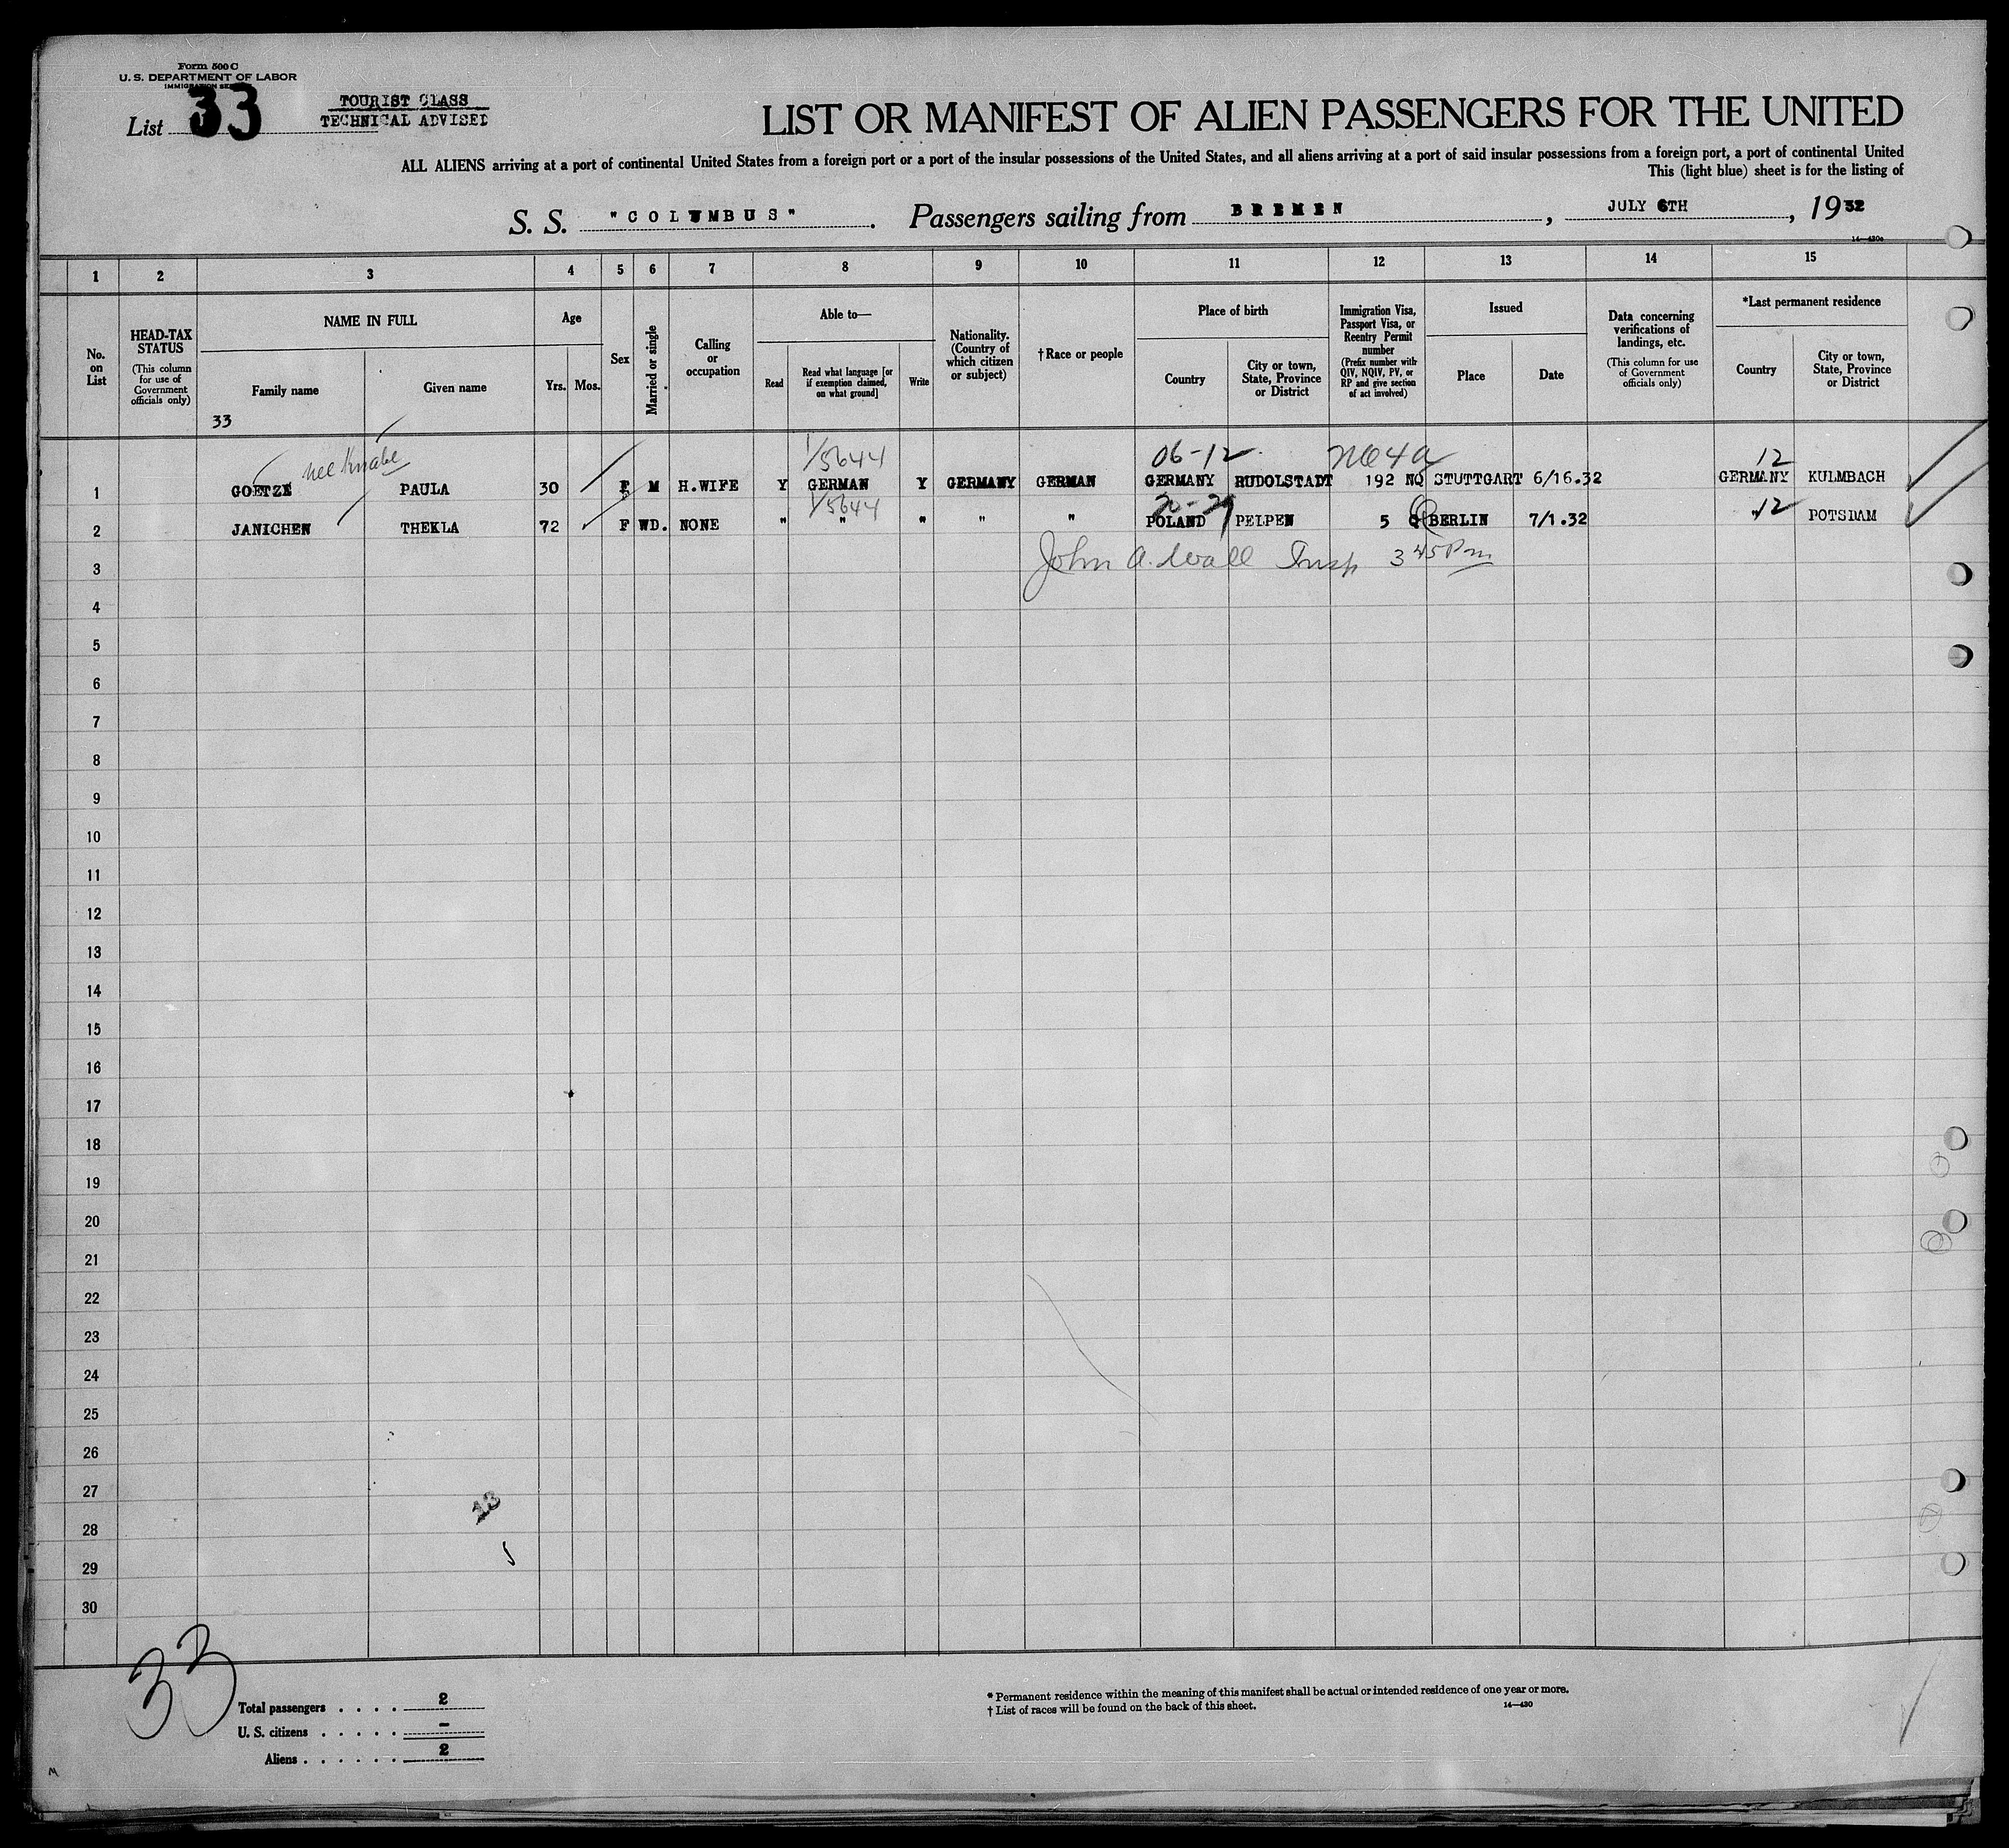 Form 500 C
U. S. DEPARTMENT OF LABOR
List 33
TOURIST CLASS
TECHNICAL ADVISED
LIST OR MANIFEST OF ALIEN PASSENGERS FOR THE UNITED
ALL ALIENS arriving at a port of continental United States from a foreign port or a port of the insular possessions of the United States, and all aliens arriving at a port of said insular possessions from a foreign port, a port of continental United
This (light blue) sheet is for the listing of
S. S. "COLUMBUS". Passengers sailing from BREMEN, JULY 6TH, 1932
1 2 3 4 5 6 7 8 9 10 11 12 13 14 15
No. on List
HEAD-TAX STATUS
(This column for use of Government officials only)
NAME IN FULL
Family name
Given name
33
Age
Yrs. Mos.
Sex
Married or single
Calling or occupation
Able to—
Read
Read what language [or if exemption claimed, on what ground]
Write
Nationality. (Country of which citizen or subject)
† Race or people
Place of birth
Country
City or town, State, Province or District
Immigration Visa, Passport Visa, or Reentry Permit number
(Prefix number with QIV, NQIV, PV, or RP and give section of act involved)
Issued
Place
Date
Data concerning verifications of landings, etc.
(This column for use of Government officials only)
*Last permanent residence
Country
City or town, State, Province or District
nee Knabe 1/5644 06-12 12
1 GOETZE PAULA 30 F M H.WIFE Y GERMAN Y GERMANY GERMAN GERMANY RUDOLSTADT 192 NQ STUTTGART 6/16.32 GERMANY KULMBACH
1/5644 12
2 JANICHEN THEKLA 72 F WD. NONE " " " " " POLAND PELPEN 5 Q BERLIN 7/1.32 " POTSDAM
3 John A. Wall Insp 3 45 Pm
4
5
6
7
8
9
10
11
12
13
14
15
16
17
18
19
20
21
22
23
24
25
26
27
28
29
30
33
Total passengers . . . . 2
U. S. citizens . . . . . –
Aliens . . . . . . 2
* Permanent residence within the meaning of this manifest shall be actual or intended residence of one year or more.
† List of races will be found on the back of this sheet.
14—430